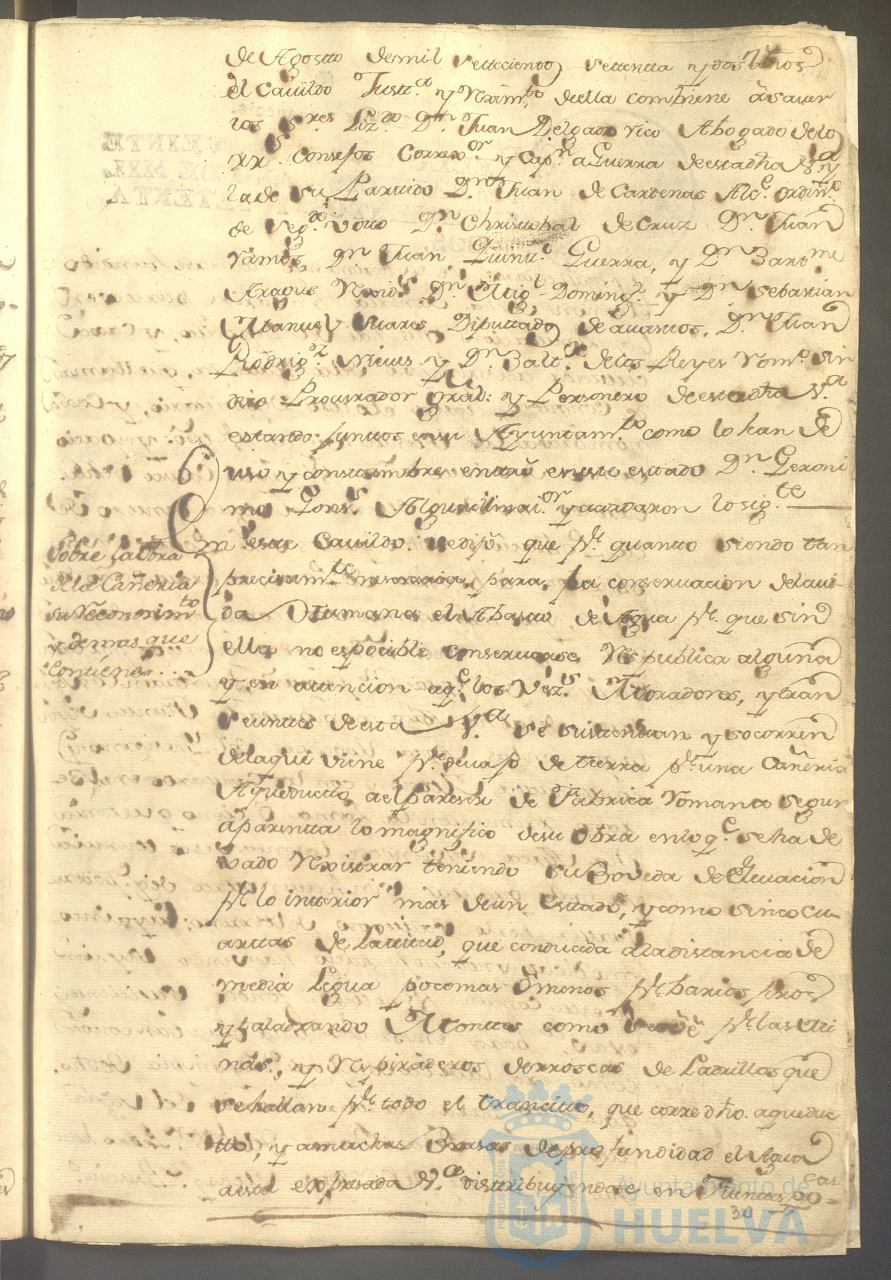 de Agostto demil settecientos settentta y dos años
el Cavildo Justt.ª y Rexim.to deella combiene â saver
los S.res Liz.do D.n Juan Delgado rico Abogado delos
RR.s Consejos Correx.or y Cap.n a Guerra deestadha V.ª y
la de su Partido D.n Juan de Cardenas Alc.e ordin.º
de seg.do votto D.n Christobal de Cruz D.n Juan
ramos, D.n Juan Quint.º Guerra, y D.n Bart.me
D.n Mig.l Doming.z y D.n Sebastian
Manuel Suares Diputtados de avastos, D.n Juan
Rodrig.z y D.n Balt.r delos Reyes rom.º sin
dico Procurador gral: y Personero deestadha V.ª
estando junttos ensu Ayuntam.to como lo han de
uso y costtumbre entró enestte estado D.n Geroni
mo Gons.s Alguacil mai.or y acordaron lo sig.te
En este Cavildo sedijo que p.r quanto siendo tan
precisam.te nesesaria para la conservacion delavi-
da Humana el Abasto de Agua p.r que sin
ella no es pocible conservarse Republica alguna
y en atencion aq.e los Vez.s Moradores, y tran
seuntes deesta V.ª se sustentan y socorren
delaque viene p.r devajo de tierra p.r una Cañeria
Aqueducto, ael pareser de Fabrica romana segun
aparentta lo magnifico desu obra enlo q.e se ha de
vado Rexistrar teniendo su Boveda de Elevacion
p.r lo interior mas deun estado, y como sinco cu
arttas de Latitud, que conducida ala distancia de
media Legua poco mas ô menos p.r barios
y taladrando Montes como se vé p.r las
nas, y Respiraderos derroscas de Ladrillos que
se hallan p.r todo el trancitto, que corre dho. aqueduc
tto, y amuchas Brasas de profundidad el Agua
aesta expresada V.ª distribuyendose en Fuentes
Sobre la obra
de la Cañeria
su Reconosim.to
y demas que
contiene
30
Ayuntamiento de
HUELVA